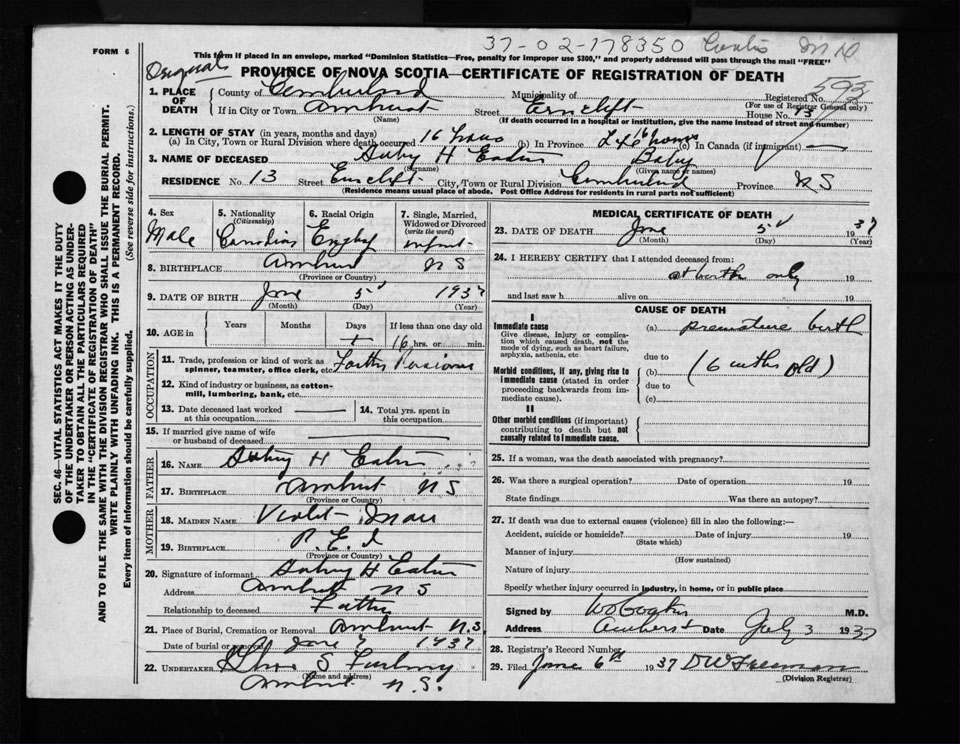 FORM 6
37-02-178350
This form if placed in an envelope, marked "Dominion Statistics—Free, penalty for improper use $300," and properly addressed will pass through the mail "FREE"
Original
PROVINCE OF NOVA SCOTIA—CERTIFICATE OF REGISTRATION OF DEATH
593
1. PLACE OF DEATH
County of Cumberland Municipality of Registered No.
(For use of Registrar General only)
If in City or Town Amherst Street House No. 13
(Name) (If death occurred in a hospital or institution, give the name instead of street and number)
2. LENGTH OF STAY (in years, months and days)
(a) In City, Town or Rural Division where death occurred 16 hours (b) In Province 16 hours (c) In Canada (if immigrant) —
3. NAME OF DECEASED H Baby
(Surname) (Given name or names)
RESIDENCE No. 13 Street City, Town or Rural Division Cumberland Province N S
(Residence means usual place of abode. Post Office Address for residents in rural parts not sufficient)
4. Sex
Male
5. Nationality
(Citizenship)
Canadian
6. Racial Origin
English
7. Single, Married, Widowed or Divorced
(write the word)
infant
8. BIRTHPLACE Amherst N S
(Province or Country)
9. DATE OF BIRTH June 5 1937
(Month) (Day) (Year)
10. AGE in
Years Months Days If less than one day old
16 hrs. or min.
OCCUPATION
11. Trade, profession or kind of work as spinner, teamster, office clerk, etc.
12. Kind of industry or business, as cotton-mill, lumbering, bank, etc.
13. Date deceased last worked at this occupation
14. Total yrs. spent in this occupation
15. If married give name of wife or husband of deceased
FATHER
16. Name H
17. Birthplace Amherst N S
(Province or Country)
MOTHER
18. Maiden Name Violet
19. Birthplace P. E. I
(Province or Country)
20. Signature of informant H
Address Amherst N S
Relationship to deceased Father
21. Place of Burial, Cremation or Removal Amherst N.S.
Date of burial or removal June 1937
22. Undertaker S
(Name and address)
Amherst N.S.
MEDICAL CERTIFICATE OF DEATH
23. DATE OF DEATH June 5 1937
(Month) (Day) (Year)
24. I HEREBY CERTIFY that I attended deceased from:
at birth only 19
and last saw h alive on 19
CAUSE OF DEATH
I
Immediate cause
Give disease, injury or complication which caused death, not the mode of dying, such as heart failure, asphyxia, asthenia, etc.
(a) premature birth
due to
Morbid conditions, if any, giving rise to immediate cause (stated in order proceeding backwards from immediate cause).
(b) (6 mths old)
due to
(c)
II
Other morbid conditions (if important) contributing to death but not causally related to immediate cause.
25. If a woman, was the death associated with pregnancy?
26. Was there a surgical operation? Date of operation 19
State findings Was there an autopsy?
27. If death was due to external causes (violence) fill in also the following:—
Accident, suicide or homicide? Date of injury 19
(State which)
Manner of injury
(How sustained)
Nature of injury
Specify whether injury occurred in industry, in home, or in public place
Signed by M.D.
Address Amherst Date July 3 1937
28. Registrar's Record Number
29. Filed June 6th 1937 D W Freeman
(Division Registrar)
SEC. 46—VITAL STATISTICS ACT MAKES IT THE DUTY
OF THE UNDERTAKER OR PERSON ACTING AS UNDER-
TAKER TO OBTAIN ALL THE PARTICULARS REQUIRED
IN THE "CERTIFICATE OF REGISTRATION OF DEATH"
AND TO FILE THE SAME WITH THE DIVISION REGISTRAR WHO SHALL ISSUE THE BURIAL PERMIT.
WRITE PLAINLY WITH UNFADING INK. THIS IS A PERMANENT RECORD.
Every item of information should be carefully supplied. (See reverse side for instructions.)